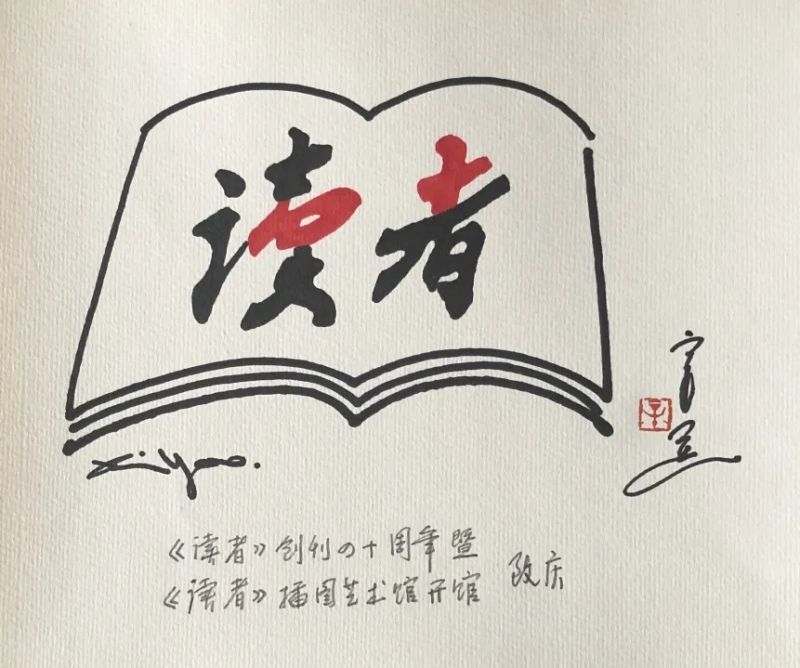 读者
Xi Yao.
《读者》创刊の十周年暨
《读者》插图艺术馆开馆
致庆